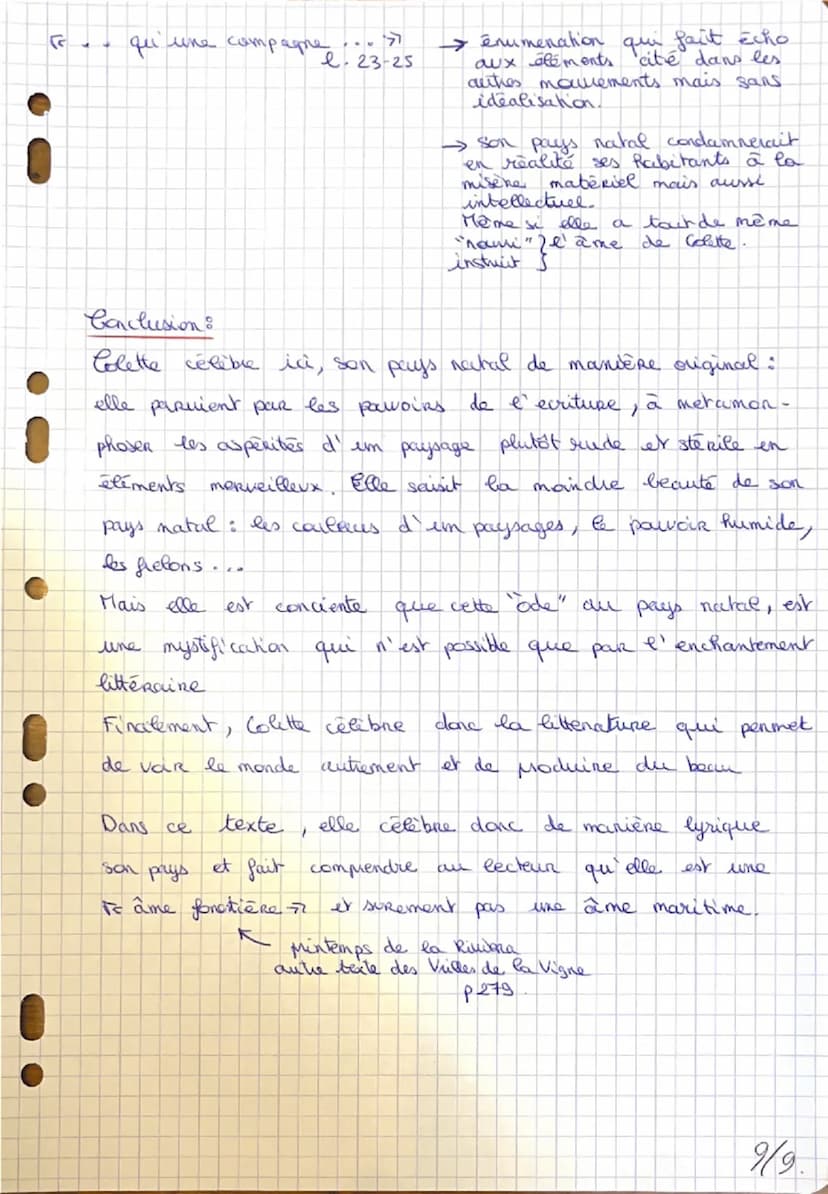 « .. qu'une campagne ... »
l. 23-25
→ énumération qui fait écho
aux éléments cité dans les
autres mouvements mais sans
idéalisation.
→ son pays natal condamnerait
en réalité ses habitants à la
misère matériel mais aussi
intellectuel.
Même si elle a tout de même
"nourri" } l'âme de Colette.
instruit
Conclusion :
Colette célèbre ici, son pays natal de manière original :
elle parvient par les pouvoirs de l'ecriture, à metamor-
phoser les aspérités d'un paysage plutôt rude et stérile en
éléments merveilleux. Elle saisit la moindre beauté de son
pays natal : les couleurs d'un paysages, le pouvoir humide,
les frelons ...
Mais elle est conciente que cette "ode" au pays natal, est
une mystification qui n'est possible que par l'enchantement
littéraire
Finalement, Colette célèbre donc la littérature qui permet
de voir le monde autrement et de produire du beau
Dans ce texte, elle célèbre donc de manière lyrique
son pays et fait comprendre au lecteur qu'elle est une
« âme forêtière » et surement pas une âme maritime.
printemps de la Riviera
autre texte des Vrilles de la Vigne
p 279.
9/9.